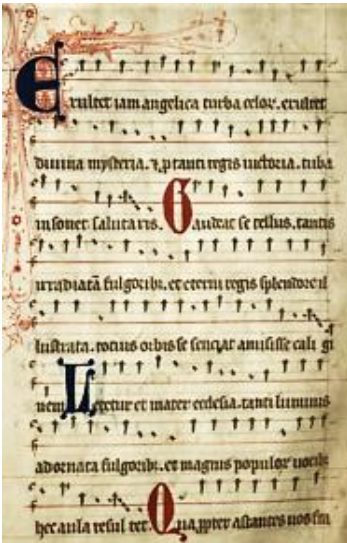 Exultet iam angelica turba celoꝝ. exultēt
diuina mysteria. ⁊ ꝓ tanti regis uictoria. tuba
insonet salutaris. Gaudeat se tellus. tantis
irradiatā fulgoribꝫ. et eterni regis splendore il
lustrata. tocius orbis se senciat amisisse cali gi
nem. Letetur et mater ecclesia. tanti luminis
adornata fulgoribꝫ. et magnis populoꝝ uocibꝫ
hec aula resul tet. Qua ꝓpter astantes uos fr̄a